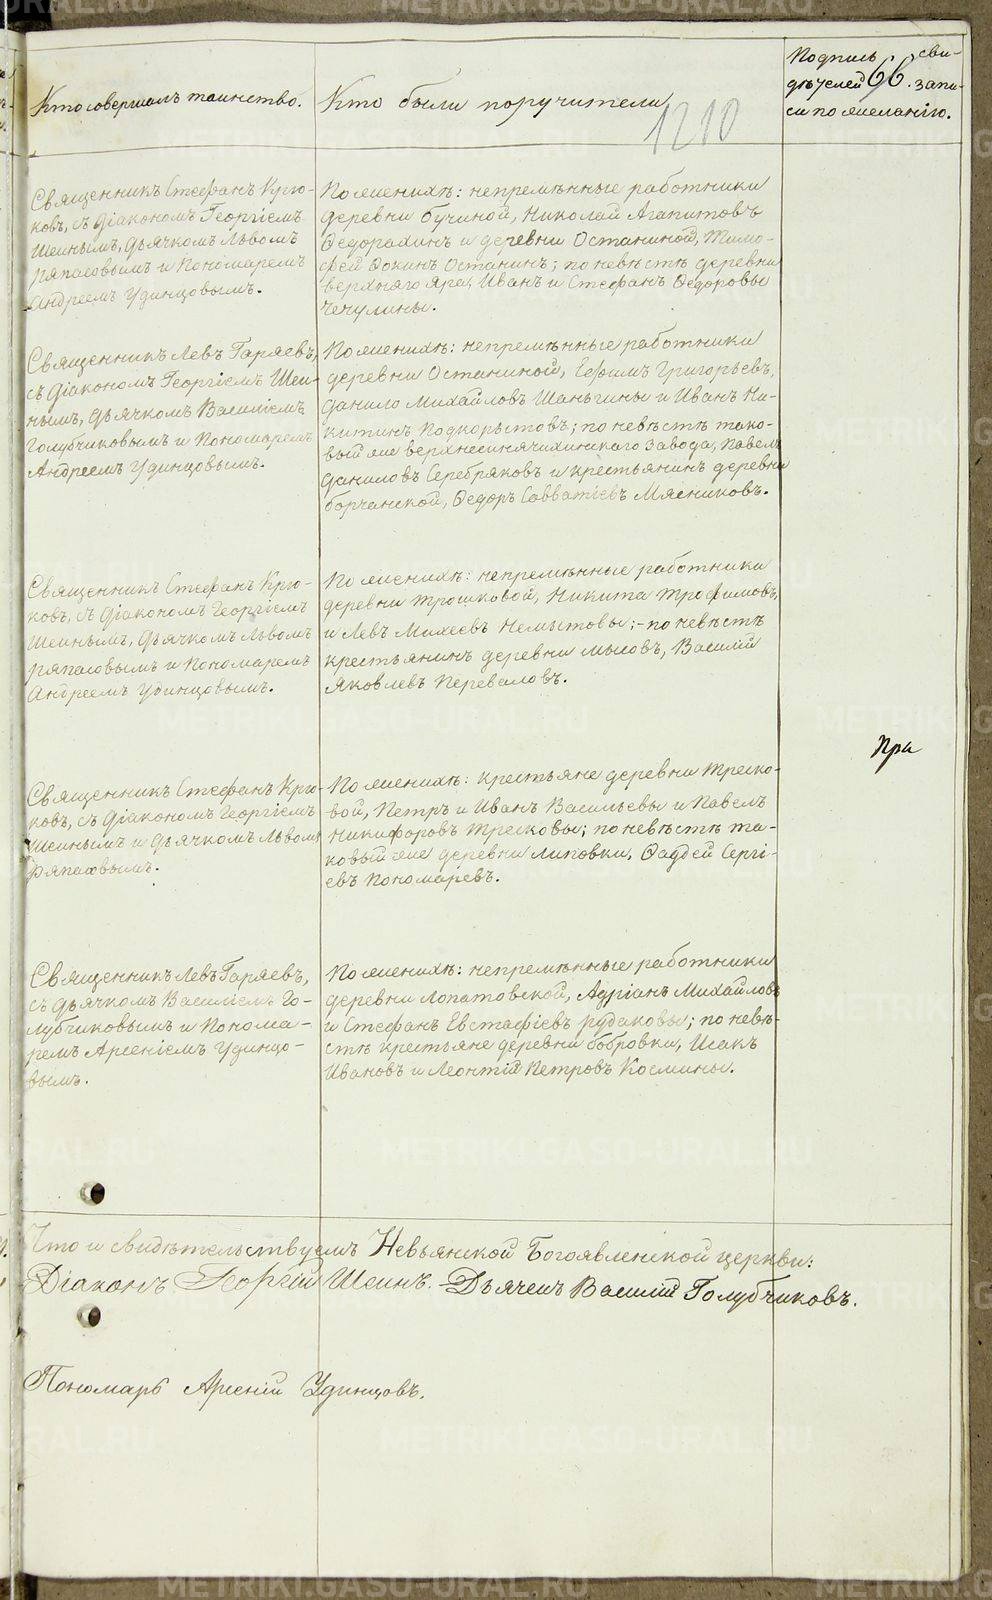 Кто совершалъ таинство.
Кто были поручители
1210
Подпись сви-
дѣтелей 66. запи-
си по желанію.
Священникъ Стефанъ Крю-
ковъ, съ діакономъ Георгіемъ
Шеинымъ, дьячкомъ Львомъ
Ряпасовымъ и Пономаремъ
Андреемъ Удинцовымъ.
По женихѣ: непремѣнные работники
деревни бучиной, Николай Агапитовъ
Ѳедорахинъ и деревни Останиной, Тимо-
фей Ѳокинъ Останинъ; по невѣстѣ деревни
верхняго яра, Иванъ и Стефанъ Ѳедоровы
Чечулины.
Священникъ Левъ Гаряевъ,
съ діакономъ Георгіемъ Шеи-
нымъ, дьячкомъ Василіемъ
Голубчиковымъ и Пономаремъ
Андреемъ Удинцовымъ.
По женихѣ: непремѣнные работники
деревни Останиной, Ефимъ Григорьевъ,
Данило Михайловъ Шаньгины и Иванъ Ни-
китинъ Подкорытовъ; по невѣстѣ тако-
вый же верхнесинячихинскаго завода, Павелъ
Даниловъ Серебряковъ и крестьянинъ деревни
борчанской, Ѳедоръ Савватіевъ Мясниковъ.
Священникъ Стефанъ Крю-
ковъ, съ діакономъ Георгіемъ
Шеинымъ, дьячкомъ Львомъ
Ряпасовымъ и Пономаремъ
Андреемъ Удинцовымъ.
По женихѣ: непремѣнные работники
деревни трошковой, Никита Трофимовъ,
и Левъ Михеевъ Немытовы; - по невѣстѣ
крестьянинъ деревни мысовъ, Василій
Яковлевъ Переваловъ.
Пра
Священникъ Стефанъ Крю-
ковъ, съ діакономъ Георгіемъ
Шеинымъ и дьячкомъ Львомъ
Ряпасовымъ.
По женихѣ: крестьяне деревни треско-
вой, Петръ и Иванъ Васильевы и Павелъ
Никифоровъ Тресковы; по невѣстѣ та-
ковый же деревни липовки, Ѳаддей Сергі-
евъ Пономаревъ.
Священникъ Левъ Гаряевъ,
съ дьячкомъ Василіемъ Го-
лубчиковымъ и Понома-
ремъ Арсеніемъ Удинцо-
вымъ.
По женихѣ: непремѣнные работники
деревни лопатовской, Адріанъ Михайловъ
и Стефанъ Евстафіевъ рудаковы; по невѣ-
стѣ крестьяне деревни бобровки, Исакъ
Ивановъ и Леонтій Петровъ Космины.
Что и свидѣтельствуемъ Невьянской Богоявленской церкви:
Діаконъ Георгій Шеинъ. Дьячекъ Василій Голубчиковъ.
Пономарь Арсеній Удинцовъ.
METRIKI.GASO-URAL.RU